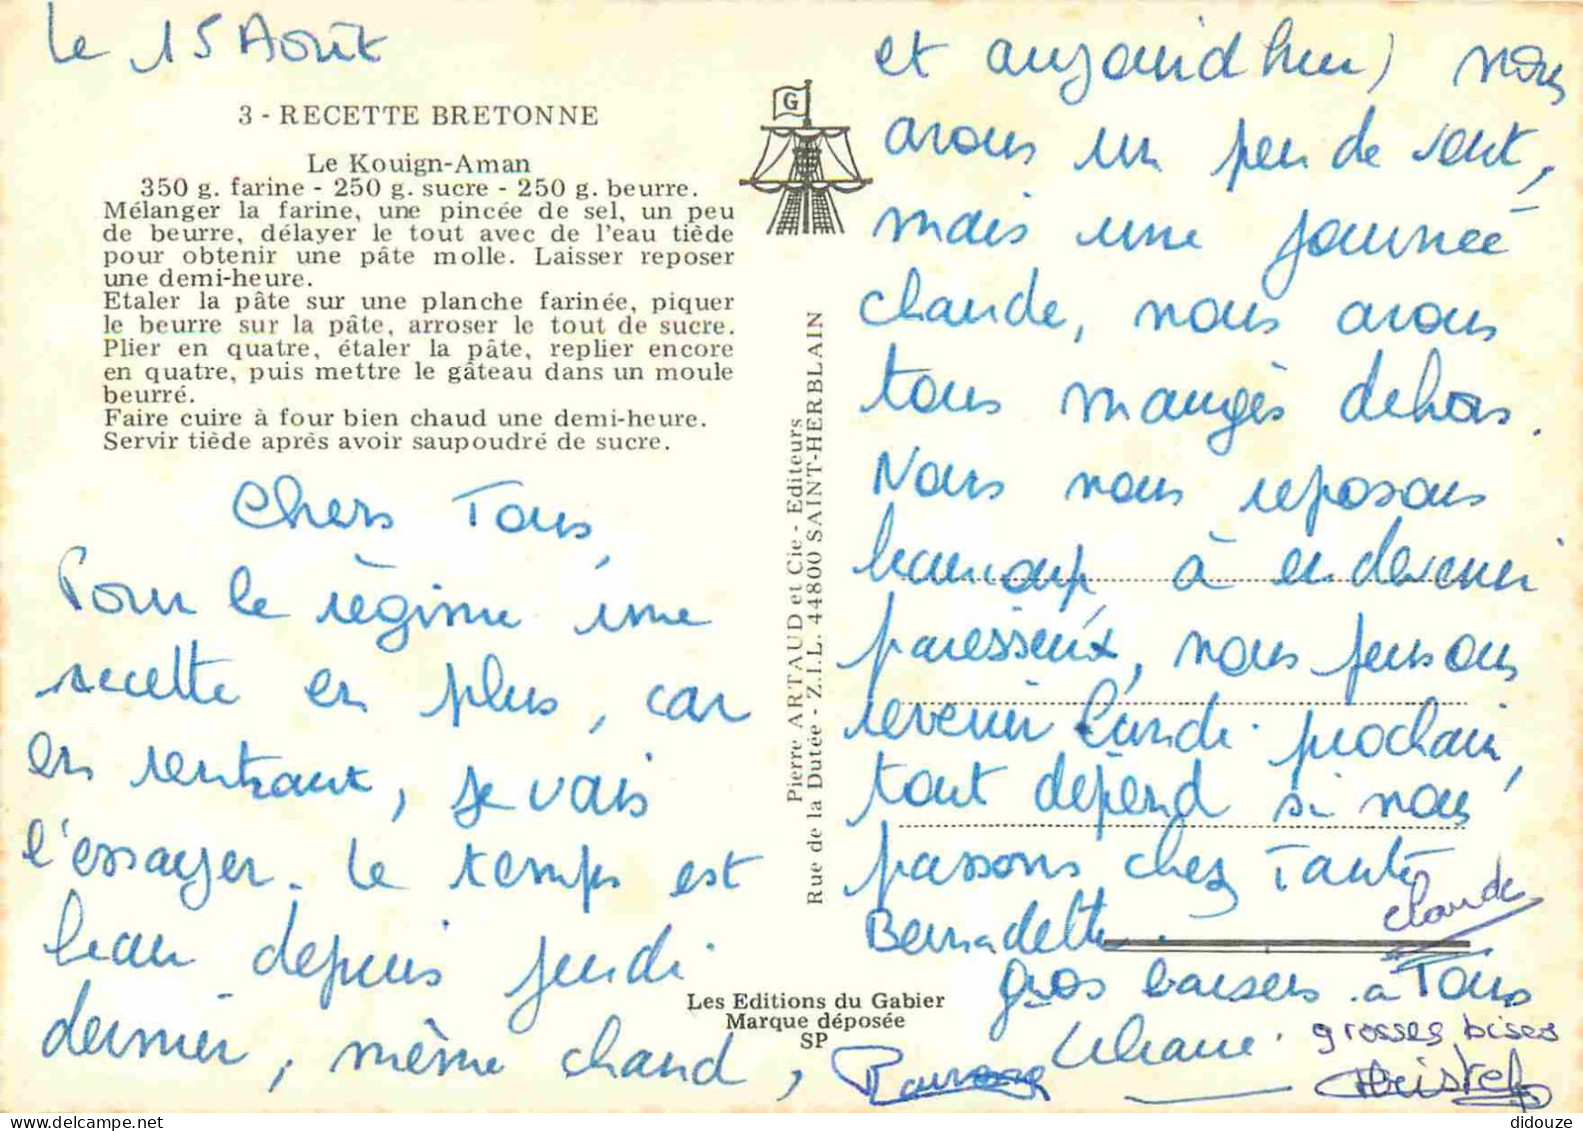 le 15 Août
3 - RECETTE BRETONNE
Le Kouign-Aman
350 g. farine - 250 g. sucre - 250 g. beurre.
Mélanger la farine, une pincée de sel, un peu
de beurre, délayer le tout avec de l'eau tiède
pour obtenir une pâte molle. Laisser reposer
une demi-heure.
Etaler la pâte sur une planche farinée, piquer
le beurre sur la pâte, arroser le tout de sucre.
Plier en quatre, étaler la pâte, replier encore
en quatre, puis mettre le gâteau dans un moule
beurré.
Faire cuire à four bien chaud une demi-heure.
Servir tiède après avoir saupoudré de sucre.
Chers Tous,
Pour le régime une
recette en plus, car
en rentrant, je vais
l'essayer. le temps est
beau depuis jeudi
dernier, même chaud,
G
Pierre ARTAUD et Cie - Editeurs
Rue de la Dutée - Z.I.L. 44800 SAINT-HERBLAIN
Les Editions du Gabier
Marque déposée
SP
et aujourid hui) nous
avons un peu de vent,
mais une journée
chaude, nous avons
tous mangés dehors.
Nous nous reposons
beaucoup, à en devenir
paresseux, nous pensons
revenir lundi prochain,
tout dépend si nous
passons chez Tante
Bernadette.
Claude
gros baisers à Tous
Liliane.
grosses bises
Christel
didouze